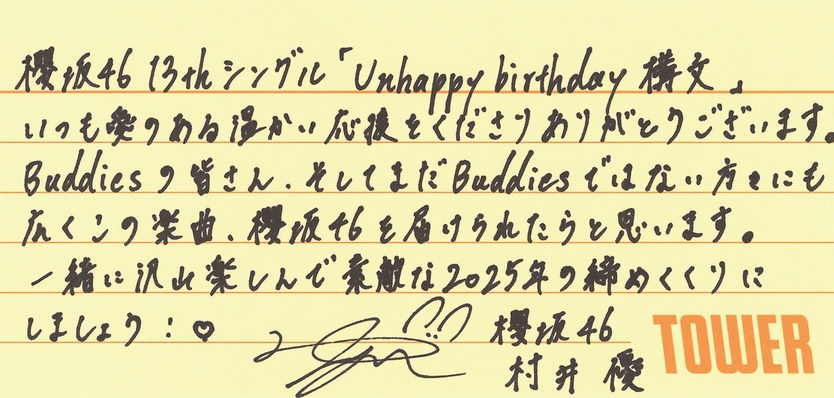 櫻坂46 13thシングル「Unhappy birthday 構文」
いつも愛のある温かい応援をくださりありがとうございます。
Buddiesの皆さん、そしてまだBuddiesではない方々にも
広くこの楽曲、櫻坂46を届けられたらと思います。
一緒に沢山楽しんで素敵な2025年の締めくくりに
しましょう!♡
櫻坂46
村井 優
TOWER